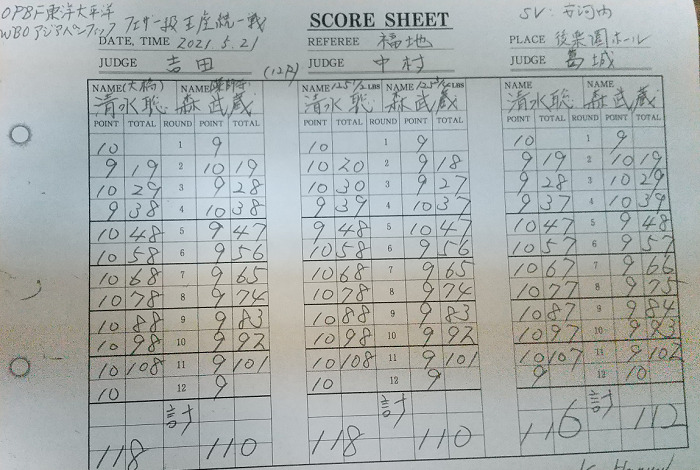 OPBF東洋太平洋
WBOアジアパシフィック フェザー級王座統一戦
SCORE SHEET
SV: 安河内
DATE, TIME 2021.5.21 REFEREE 福地 PLACE 後楽園ホール
JUDGE 吉田 (12R) JUDGE 中村 JUDGE 葛城
NAME(大橋) NAME(薬師寺) NAME 125 1/2 LBS NAME 125 3/4 LBS NAME NAME
清水聡 森武蔵 清水聡 森武蔵 清水聡 森武蔵
POINT TOTAL ROUND POINT TOTAL POINT TOTAL ROUND POINT TOTAL POINT TOTAL ROUND POINT TOTAL
10 1 9 10 1 9 10 1 9
9 19 2 10 19 10 20 2 9 18 9 19 2 10 19
10 29 3 9 28 10 30 3 9 27 9 28 3 10 29
9 38 4 10 38 9 39 4 10 37 9 37 4 10 39
10 48 5 9 47 9 48 5 10 47 10 47 5 9 48
10 58 6 9 56 10 58 6 9 56 10 57 6 9 57
10 68 7 9 65 10 68 7 9 65 10 67 7 9 66
10 78 8 9 74 10 78 8 9 74 10 77 8 9 75
10 88 9 9 83 10 88 9 9 83 10 87 9 9 84
10 98 10 9 92 10 98 10 9 92 10 97 10 9 93
10 108 11 9 101 10 108 11 9 101 10 107 11 9 102
10 12 9 10 12 9 9 12 10
計 計 計
118 110 118 110 116 112